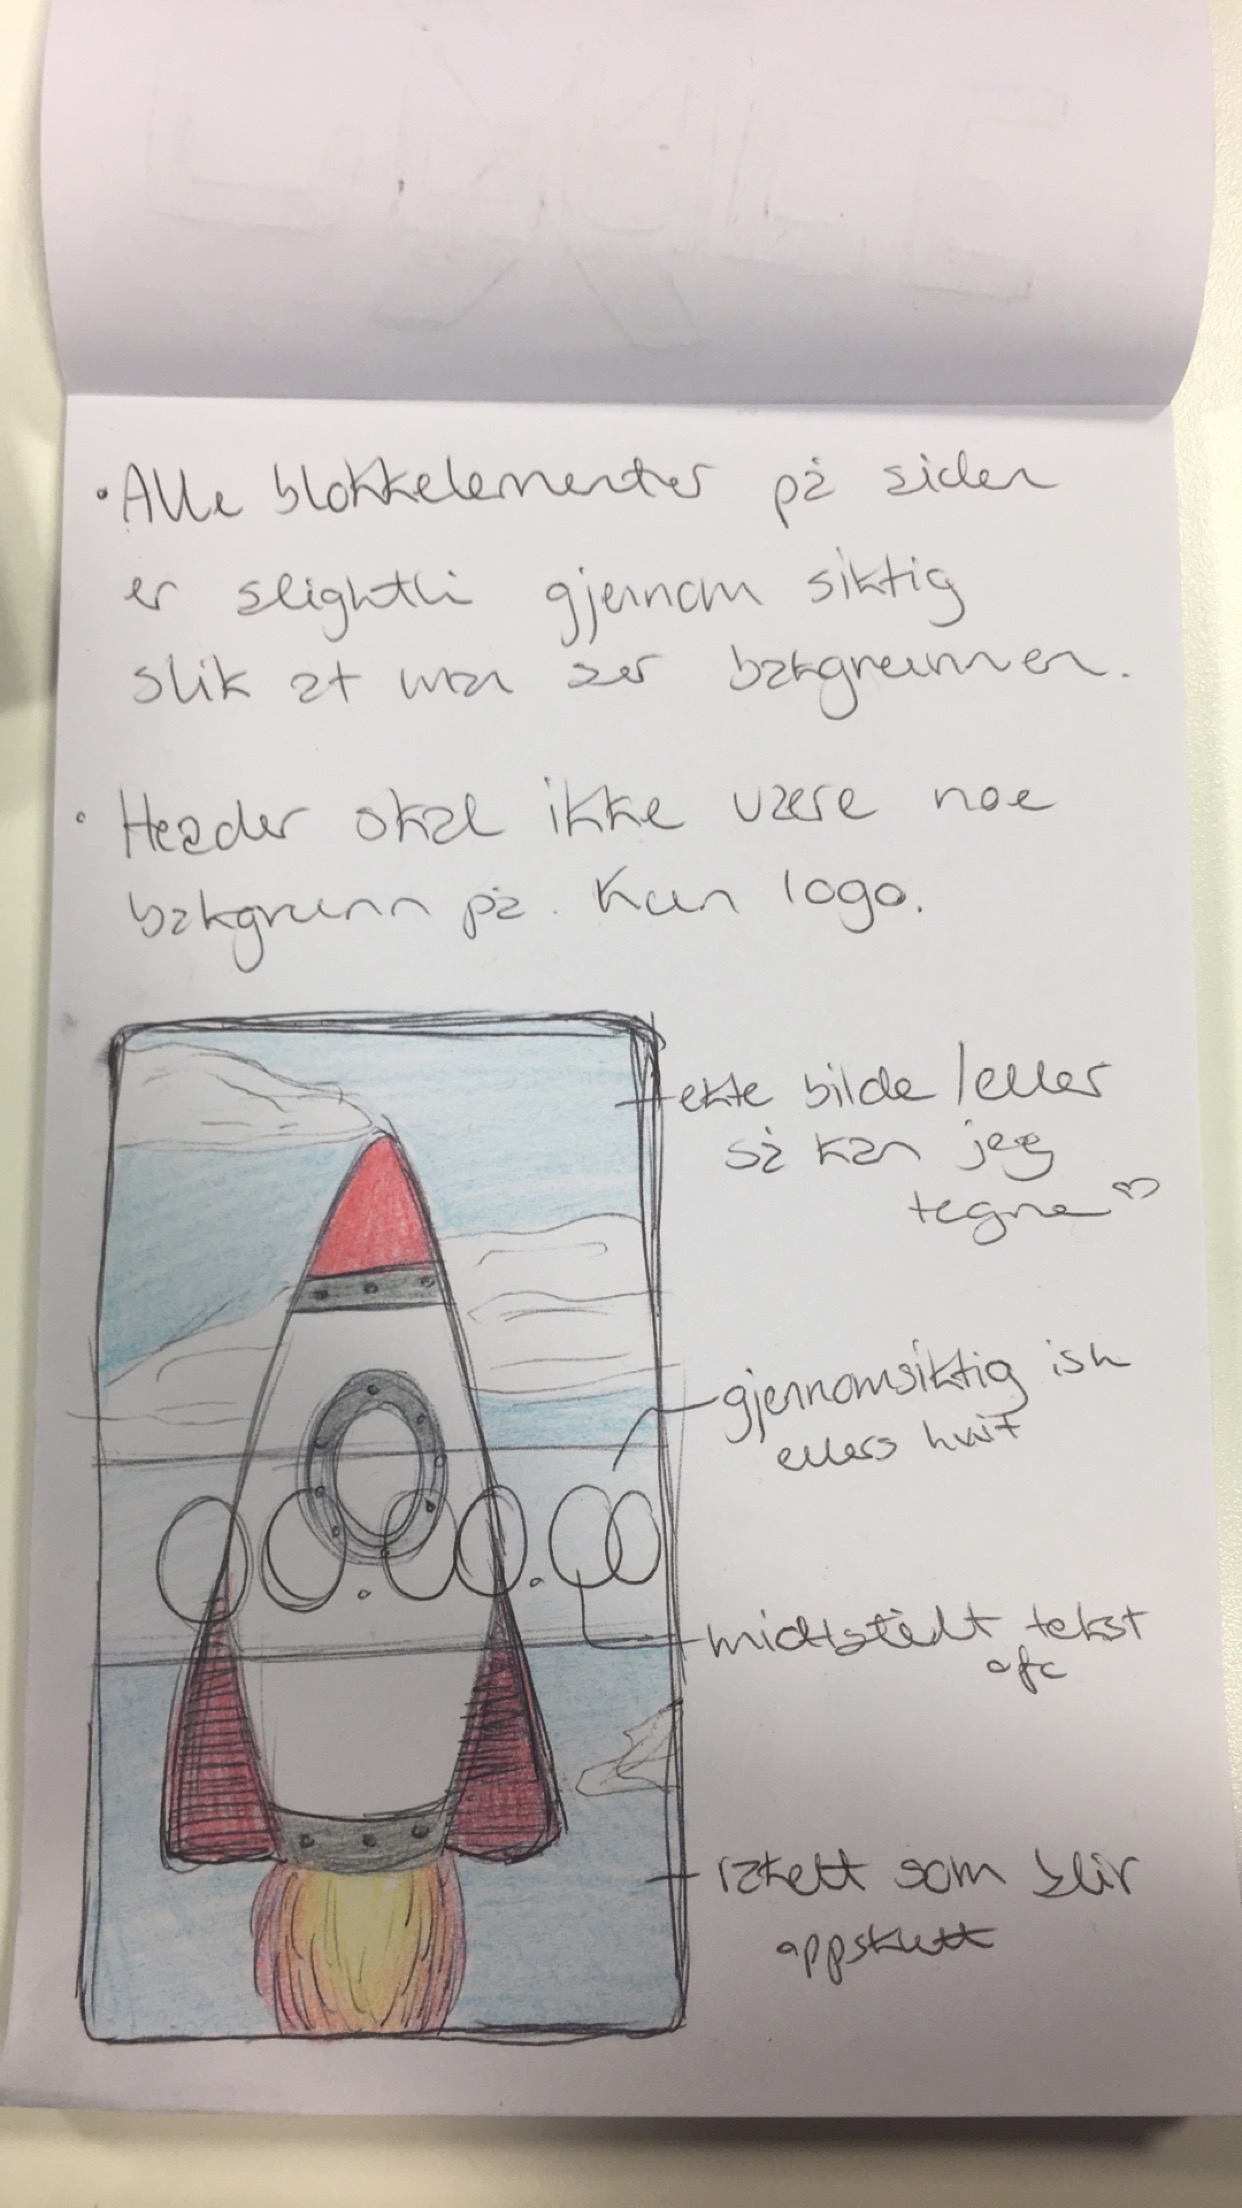 • Alle blokkelementer på siden
er slightli gjennom siktig
slik at man ser bakgrunnen.
• Header skal ikke være noe
bakgrunn på. Kun logo.
ekte bilde / eller
så kan jeg
tegne
gjennomsiktig ish
ellers hvit
00.00.00
midtstilt tekst
ofc
rakett som blir
oppskutt